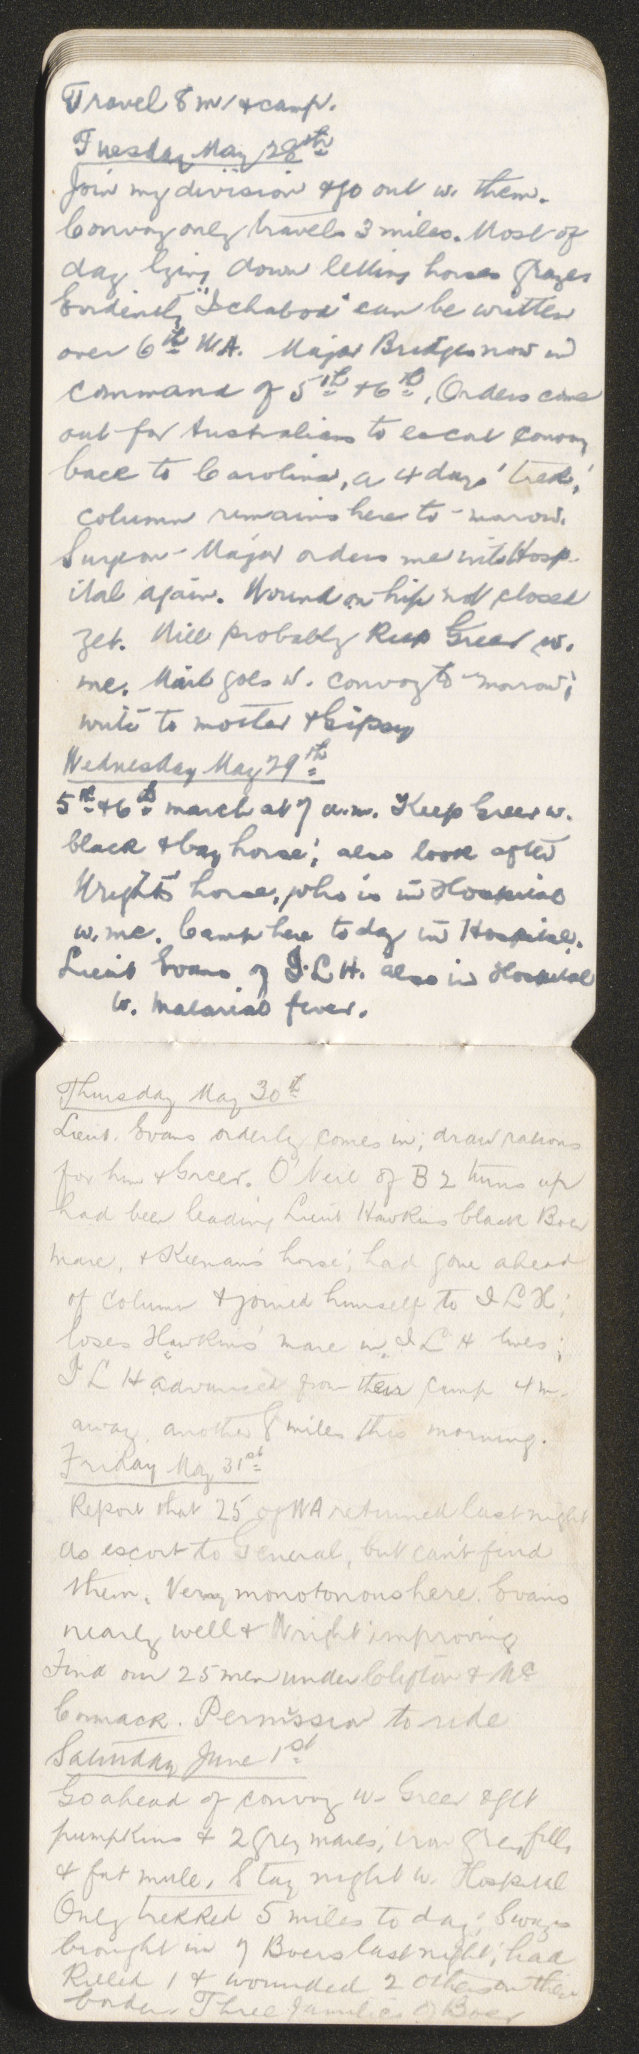 Travel 8 m. & camp.
Tuesday May 28th
Join my division & go out w. them.
Convoy only travels 3 miles. Most of
day lying down letting horses graze
Evidently "Ichabod" can be written
over 6th W.A. Major Bridges now in
command of 5th & 6th. Orders come
out for Australians to escort convoy
back to Carolina, a 4 days' trek;
column remains here to-morrow.
Surgeon-Major orders me into Hosp-
ital again. Wound on hip not closed
yet. Will probably keep Greer w.
me. Mail goes w. convoy to-morrow;
write to mother & Gipsy
Wednesday May 29th
5th & 6th march at 7 a.m. Keep Greer w.
black & bay horse; also look after
Wright's horse, who is in Hospital
w. me. Camp here today in Hospital.
Lieut Evans of I.L.H. also in Hospital
w. malarial fever.
Thursday May 30th
Lieut. Evans orderly comes in; draw rations
for him & Greer. O'Neil of B 2 turns up
had been leading Lieut Hawkins black Boer
mare, & Keenan's horse; had gone ahead
of column & joined himself to I L H;
loses Hawkins' mare in I L H lines;
I L H advanced from their camp 4 m.
away, another 8 miles this morning.
Friday May 31st
Report that 25 of WA returned last night
as escort to General, but can't find
them. Very monotonous here. Evans
nearly well & Wright improving
Find our 25 men under Clifton & Mc
Cormack. Permission to ride
Saturday June 1st
Go ahead of convoy w. Greer & get
pumpkins & 2 grey mares, iron grey filly
& fat mule. Stay night w. Hospital
Only trekked 5 miles to day; Swazis
brought in 7 Boers last night; had
killed 1 & wounded 2 others on their
border Three families of Boer